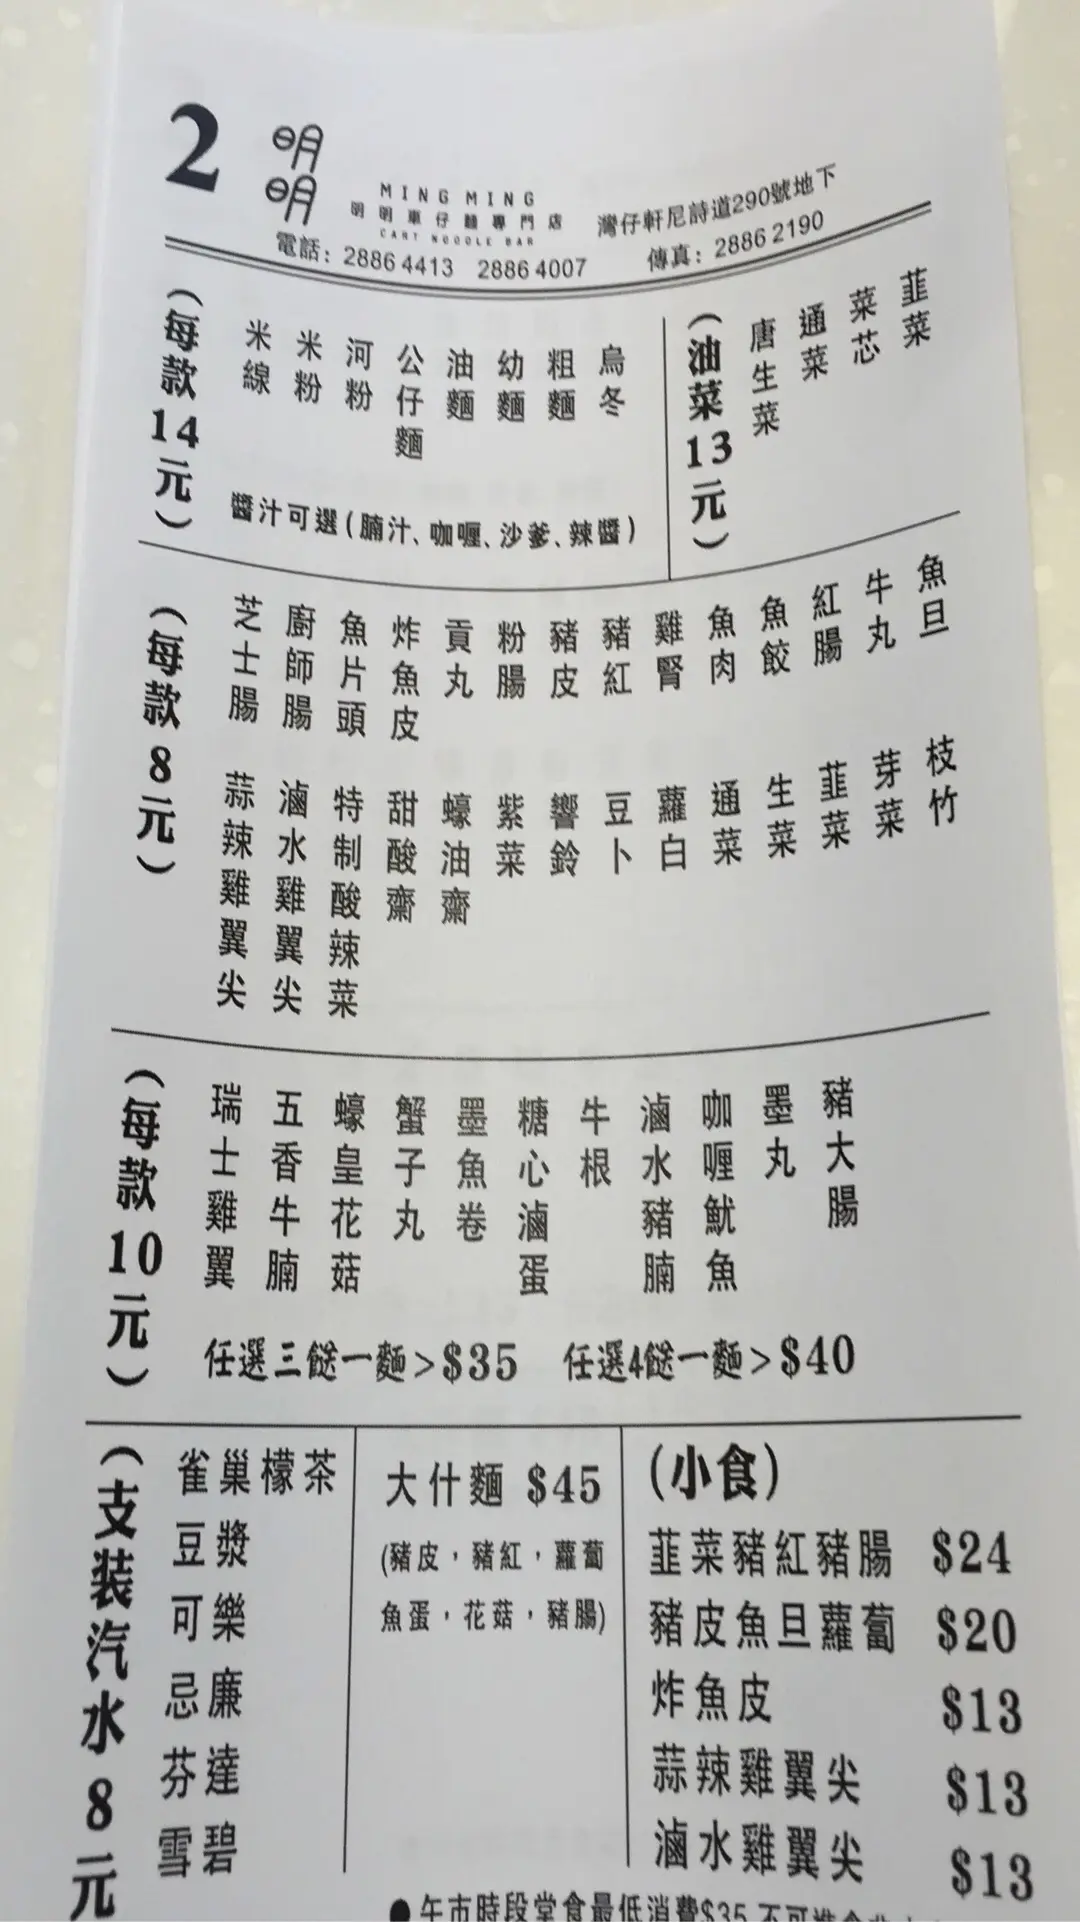 2
明明
MING MING
明明車仔麵專門店
CART NOODLE BAR
灣仔軒尼詩道290號地下
電話：2886 4413 2886 4007
傳真：2886 2190
(每款14元)
米線
米粉
河粉
公仔麵
油麵
幼麵
粗麵
烏冬
醬汁可選(腩汁、咖喱、沙爹、辣醬)
(油菜13元)
唐生菜
通菜
菜芯
韮菜
(每款8元)
芝士腸
廚師腸
魚片頭
炸魚皮
貢丸
粉腸
豬皮
豬紅
雞腎
魚肉
魚餃
紅腸
牛丸
魚旦
蒜辣雞翼尖
滷水雞翼尖
特制酸辣菜
甜酸齋
蠔油齋
紫菜
響鈴
豆卜
蘿白
通菜
生菜
韮菜
芽菜
枝竹
(每款10元)
瑞士雞翼
五香牛腩
蠔皇花菇
蟹子丸
墨魚卷
糖心滷蛋
牛根
滷水豬腩
咖喱魷魚
墨丸
豬大腸
任選三餸一麵>$35 任選4餸一麵>$40
(支装汽水8元
雀巢檬茶
豆漿
可樂
忌廉
芬達
雪碧
大什麵 $45
(豬皮，豬紅，蘿蔔
魚蛋，花菇，豬腸)
(小食)
韮菜豬紅豬腸 $24
豬皮魚旦蘿蔔 $20
炸魚皮 $13
蒜辣雞翼尖 $13
滷水雞翼尖 $13
●午市時段堂食最低消費$35